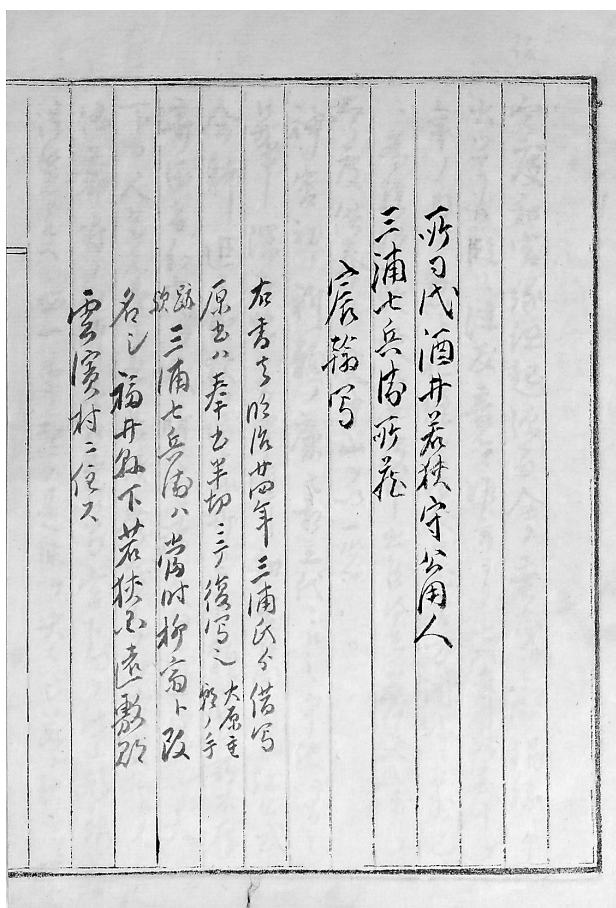 所司代酒井若狭守公用人
三浦七兵衛所蔵
宸翰写
右書ハ明治廿四年三浦氏ゟ借写
原書ハ奉書半切ニテ復写也 大原重
朝ノ手
跡歟三浦七兵衛ハ当時柳斎ト改
名シ福井県下若狭国遠敷郡
雲濱村ニ住ス